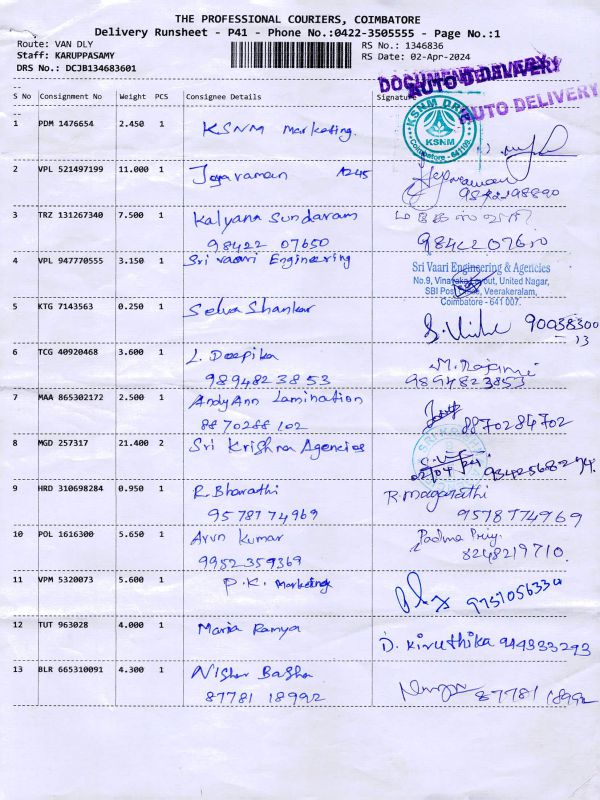 THE PROFESSIONAL COURIERS, COIMBATORE
Delivery Runsheet - P41 - Phone No.:0422-3505555 - Page No.:1
Route: VAN DLY RS No.: 1346836
Staff: KARUPPASAMY RS Date: 02-Apr-2024
DRS No.: DCJB134683601
AUTO DELIVERY
AUTO DELIVERY
S No Consignment No Weight PCS Consignee Details Signature
1 PDM 1476654 2.450 1 KSNM Marketing.
KSNM
Coimbatore - 641109
2 VPL 521497199 11.000 1 Jayaraman
Jayaraman
3 TRZ 131267340 7.500 1 Kalyana Sundaram
98422 07650 98422 07650
4 VPL 947770555 3.150 1 Sri Vaari Engineering
Sri Vaari Engineering & Agencies
United Nagar,
Veerakeralam,
Coimbatore - 641 007.
5 KTG 7143563 0.250 1 Selva Shankar
90038300
13
6 TCG 40920468 3.600 1 L. Deepika
9894823853 9894823853
7 MAA 865302172 2.500 1 AndyAnn Lamination
8870284702
8 MGD 257317 21.400 2 Sri Krishna Agencies
9 HRD 310698284 0.950 1 R. Bharathi
9578774969 9578774969
10 POL 1616300 5.650 1 Arun Kumar Padma Priy.
9952359369 8248219710.
11 VPM 5320073 5.600 1 P.K. Marketing
9751056334
12 TUT 963028 4.000 1 Maria Ramya D. Kiruthika 944333293
13 BLR 665310091 4.300 1 Nisher Basha
87781 18992 87781 18992